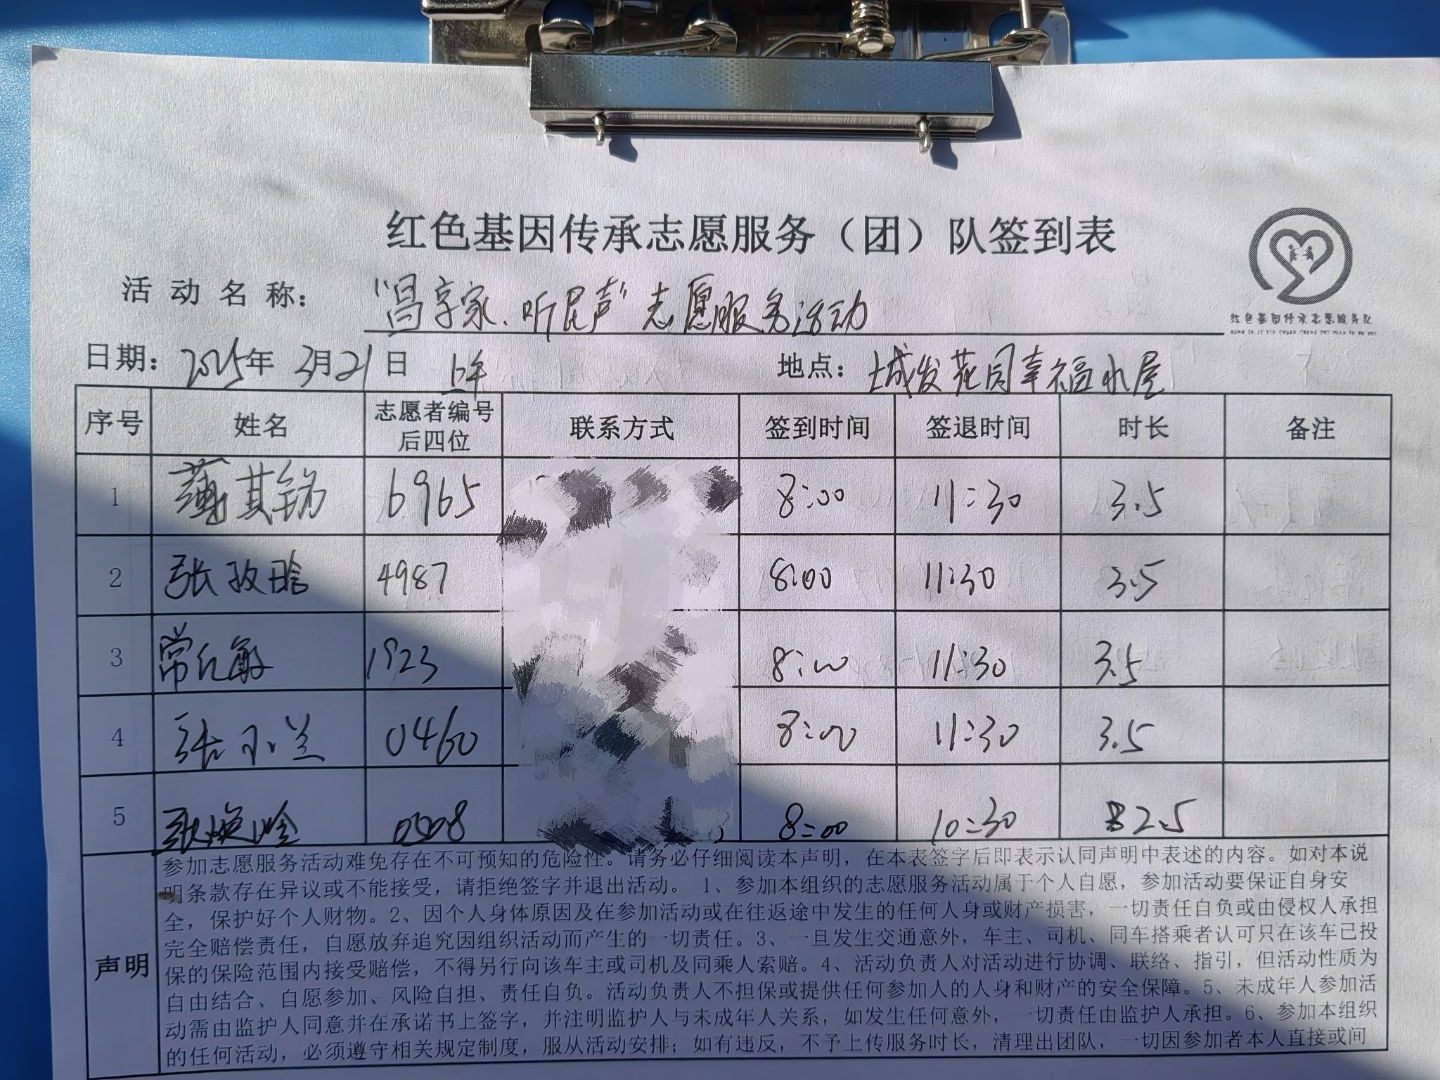 红色基因传承志愿服务（团）队签到表
红色基因传承志愿服务队
活动名称： “昌享家、听民声”志愿服务活动
日期： 2025年 3月21日 上午 地点： 城发花园幸福小屋
序号 姓名 志愿者编号后四位 联系方式 签到时间 签退时间 时长 备注
1 其 6965 8:00 11:30 3.5
2 张玫晗 4987 8:00 11:30 3.5
3 常红敏 1923 8:00 11:30 3.5
4 张小兰 0460 8:00 11:30 3.5
5 张焕玲 0508 8:00 10:30 2.5
声明
参加志愿服务活动难免存在不可预知的危险性。请务必仔细阅读本声明，在本表签字后即表示认同声明中表述的内容。如对本说
明条款存在异议或不能接受，请拒绝签字并退出活动。 1、参加本组织的志愿服务活动属于个人自愿，参加活动要保证自身安
全，保护好个人财物。2、因个人身体原因及在参加活动或在往返途中发生的任何人身或财产损害，一切责任自负或由侵权人承担
完全赔偿责任，自愿放弃追究因组织活动而产生的一切责任。3、一旦发生交通意外，车主、司机、同车搭乘者认可只在该车已投
保的保险范围内接受赔偿，不得另行向该车主或司机及同乘人索赔。4、活动负责人对活动进行协调、联络、指引，但活动性质为
自由结合、自愿参加、风险自担、责任自负。活动负责人不担保或提供任何参加人的人身和财产的安全保障。5、未成年人参加活
动需由监护人同意并在承诺书上签字，并注明监护人与未成年人关系，如发生任何意外，一切责任由监护人承担。6、参加本组织
的任何活动，必须遵守相关规定制度，服从活动安排；如有违反，不予上传服务时长，清理出团队，一切因参加者本人直接或间